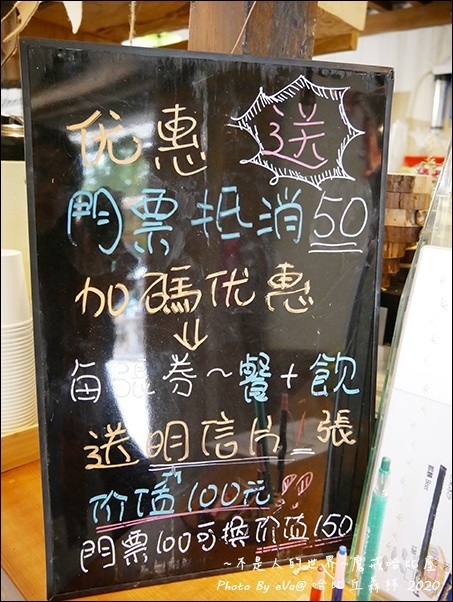 优惠 送
門票抵消50
加碼优惠
↓
每張券～餐+飲
送明信片1張
价值100元!!
門票100可換价值150
~不是人的世界~魔戒哈比屋
Photo By eVa@ 哈比丘森林 2020